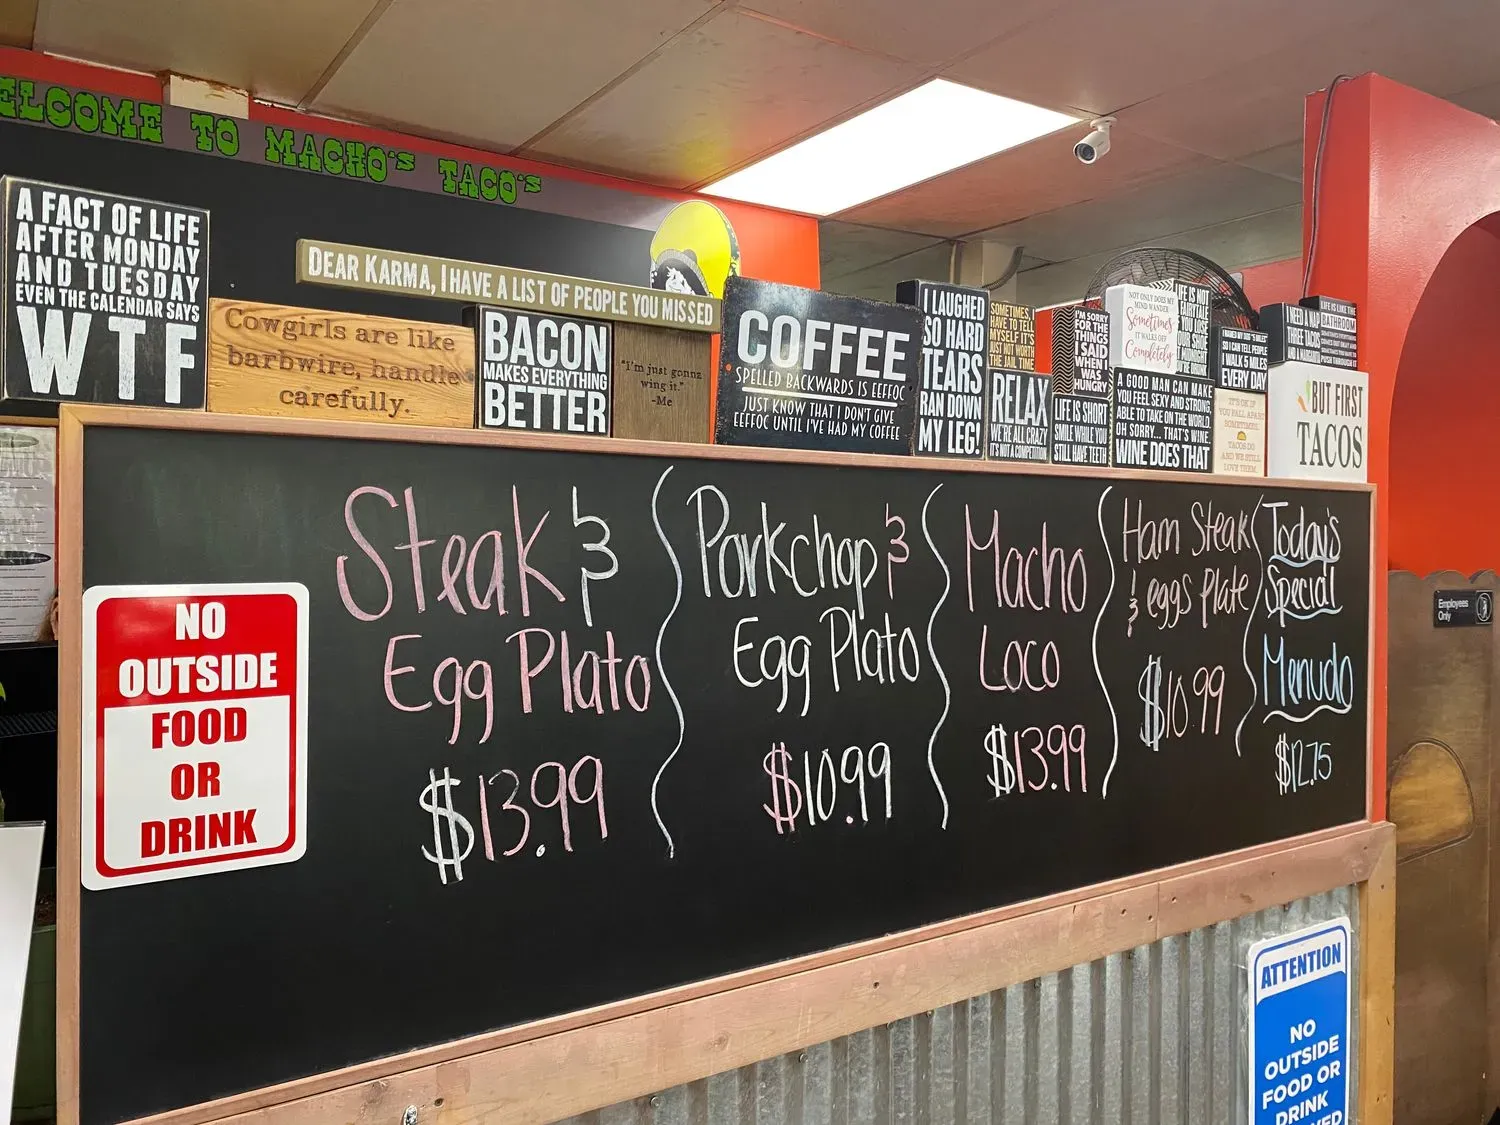 ELCOME TO MACHO'S TACO'S
A FACT OF LIFE
AFTER MONDAY
AND TUESDAY
EVEN THE CALENDAR SAYS
WTF
DEAR KARMA, I HAVE A LIST OF PEOPLE YOU MISSED
Cowgirls are like
barbwire, handle
carefully.
BACON
MAKES EVERYTHING
BETTER
"I'm just gonna
wing it."
-Me
COFFEE
SPELLED BACKWARDS IS EEFFOC
JUST KNOW THAT I DON'T GIVE
EEFFOC UNTIL I'VE HAD MY COFFEE
I LAUGHED
SO HARD
TEARS
RAN DOWN
MY LEG!
SOMETIMES, I
HAVE TO TELL
MYSELF IT'S
JUST NOT WORTH
THE JAIL TIME
RELAX
WE'RE ALL CRAZY
IT'S NOT A COMPETITION
I'M SORRY
FOR THE
THINGS
I SAID
WHEN I
WAS
HUNGRY
LIFE IS SHORT
SMILE WHILE YOU
STILL HAVE TEETH
NOT ONLY DOES MY
MIND WANDER
Sometimes
IT WALKS OFF
Completely
LIFE IS NOT
A FAIRYTALE
IF YOU LOSE
YOUR SHOE
AT MIDNIGHT
A GOOD MAN CAN MAKE
YOU FEEL SEXY AND STRONG,
ABLE TO TAKE ON THE WORLD.
OH SORRY... THAT'S WINE
WINE DOES THAT
SO I CAN TELL PEOPLE
I WALK 5 MILES
EVERY DAY
IT'S OK IF
YOU FALL APART
SOMETIMES.
TACOS DO
AND WE STILL
LOVE THEM.
I NEED A NAP
THREE TACOS
LIFE IS LIKE THE
BATHROOM
BUT FIRST
TACOS
NO
OUTSIDE
FOOD
OR
DRINK
Steak &
Egg Plato
$13.99
Porkchop &
Egg Plato
$10.99
Macho
Loco
$13.99
Ham Steak
& eggs Plate
$10.99
Today's
Special
Menudo
$12.75
Employees
Only
ATTENTION
NO
OUTSIDE
FOOD OR
DRINK